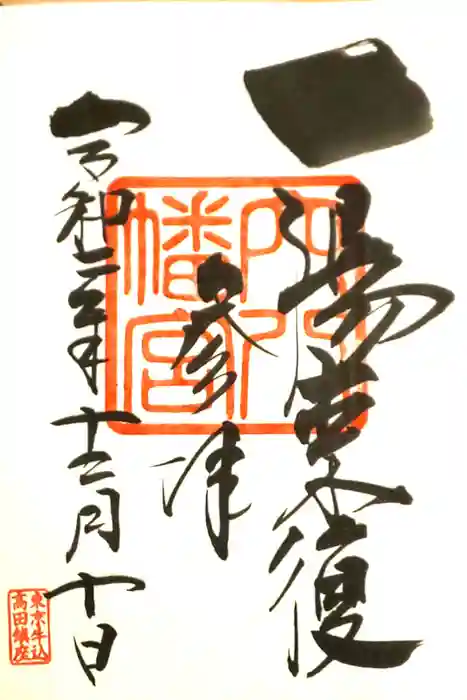 一陽来復
参拝
令和二年十二月十日
穴八
幡宮
東京牛込
高田鎮座